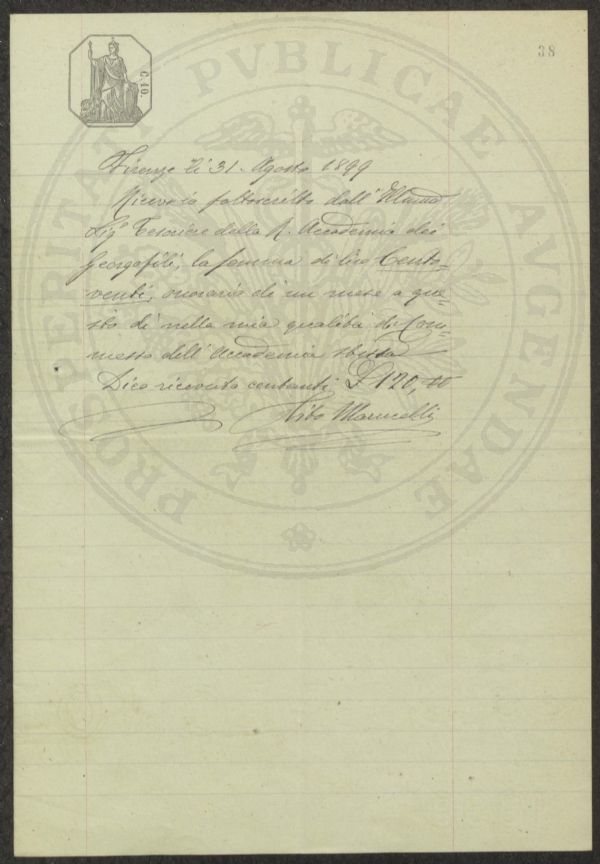 38
C. 10.
PROSPERITATI PVBLICAE AVGENDAE
Firenze li 31. Agosto 1899
Ricevo io sottoscritto dall'
Sigr Tesoriere della R. Accademia dei
Georgofili, la somma di lire Cento-
venti, onorario di un mese a que-
sto dì nella mia qualità di Com-
messo dell'Accademia
Dico ricevuto contanti £ 120,00
Tito Marucelli